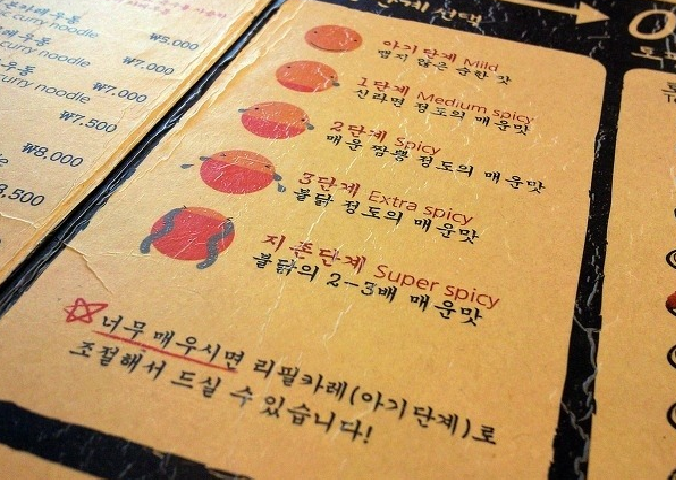 curry noodle
₩5,000
curry noodle
₩7,000
₩7,000
₩7,500
₩8,000
아기단계 Mild
맵지 않은 순한 맛
1단계 Medium spicy
신라면 정도의 매운맛
2단계 Spicy
매운 짬뽕 정도의 매운맛
3단계 Extra spicy
불닭 정도의 매운맛
지존단계 Super spicy
불닭의 2-3배 매운맛
너무 매우시면 리필카레(아기단계)로
조절해서 드실 수 있습니다!